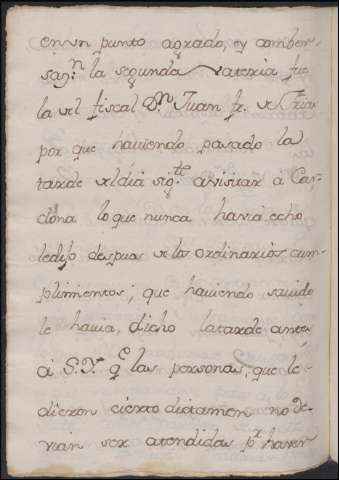 en vn punto agrado, y comber-
sazn. la segunda vateria fue
la del fiscal Dn. Juan fr. de
por que haviendo pasado la
tarde del dia sigte. avisitar â Car-
dona lo que nunca havia echo
ledijo despues de los ordinarios cum-
plimientos; que haviendo savido
le havia dicho latarde antes
â S.Y. qe las personas, que le-
dieron cierto dictamen no de-
vian ser atendidas pr. haver